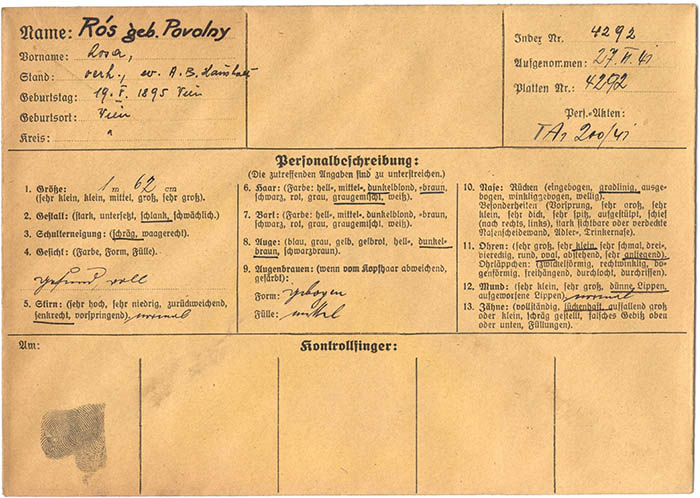 Name: Rós geb. Povolny
Vorname: Rosa,
Stand: verh., ev. A.B. Haushalt
Geburtstag: 19. V. 1895 Wien
Geburtsort: Wien
Kreis: "
Index Nr. 4292
Aufgenommen: 27. II. 41
Platten Nr. 4292
Pers.-Akten:
TAr 200/41
Personalbeschreibung:
(Die zutreffenden Angaben sind zu unterstreichen.)
1. Größe: 1 m 62 cm
(sehr klein, klein, mittel, groß, sehr groß).
2. Gestalt: (stark, untersetzt, schlank, schwächlich).
3. Schulterneigung: (schräg, waagerecht).
4. Gesicht: (Farbe, Form, Fülle).
gesund voll
5. Stirn: (sehr hoch, sehr niedrig, zurückweichend,
senkrecht, vorspringend) normal
6. Haar: (Farbe: hell-, mittel-, dunkelblond, -braun,
schwarz, rot, grau, graugemischt, weiß).
7. Bart: (Farbe: hell-, mittel-, dunkelblond, -braun,
schwarz, rot, grau, graugemischt, weiß).
8. Auge: (blau, grau, gelb, gelbrot, hell-, dunkel-
braun, schwarzbraun).
9. Augenbrauen: (wenn vom Kopfhaar abweichend,
gefärbt):
Form: gebogen
Fülle: mittel
10. Nase: Rücken (eingebogen, gradlinig, ausge-
bogen, winklig gebogen, wellig).
Besonderheiten (Vorsprung, sehr groß, sehr
klein, sehr dick, sehr spitz, aufgestülpt, schief
(nach rechts, links), stark sichtbare oder verdeckte
Nasenscheidewand, Adler-, Trinkernase).
11. Ohren: (sehr groß, sehr klein, sehr schmal, drei-,
viereckig, rund, oval, abstehend, sehr anliegend).
Ohrläppchen: (zwickelförmig, rechtwinklig, bo-
genförmig, freihängend, durchlocht, durchrissen).
12. Mund: (sehr klein, sehr groß, dünne Lippen,
aufgeworfene Lippen) normal
13. Zähne: (vollständig, lückenhaft, auffallend groß
oder klein, schräg gestellt, falsches Gebiß oben
oder unten, Füllungen).
Am:
Kontrollfinger: